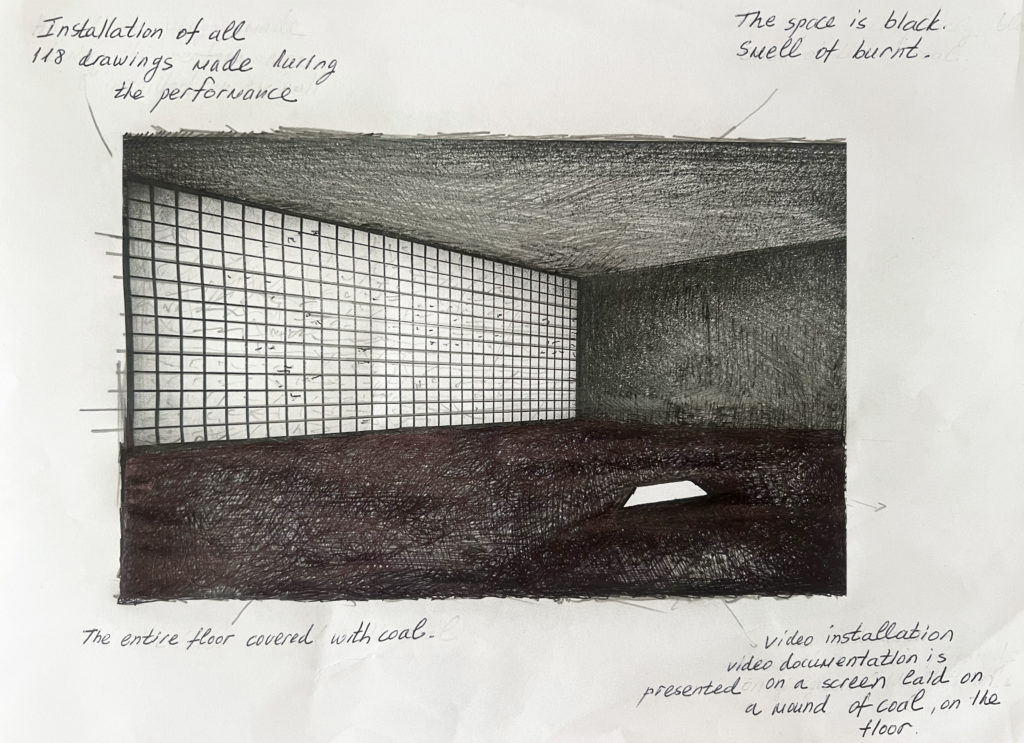 Installation of all
118 drawings made during
the performance
The space is black.
Smell of burnt.
The entire floor covered with coal.
video installation
video documentation is
presented on a screen laid on
a mound of coal, on the
floor.